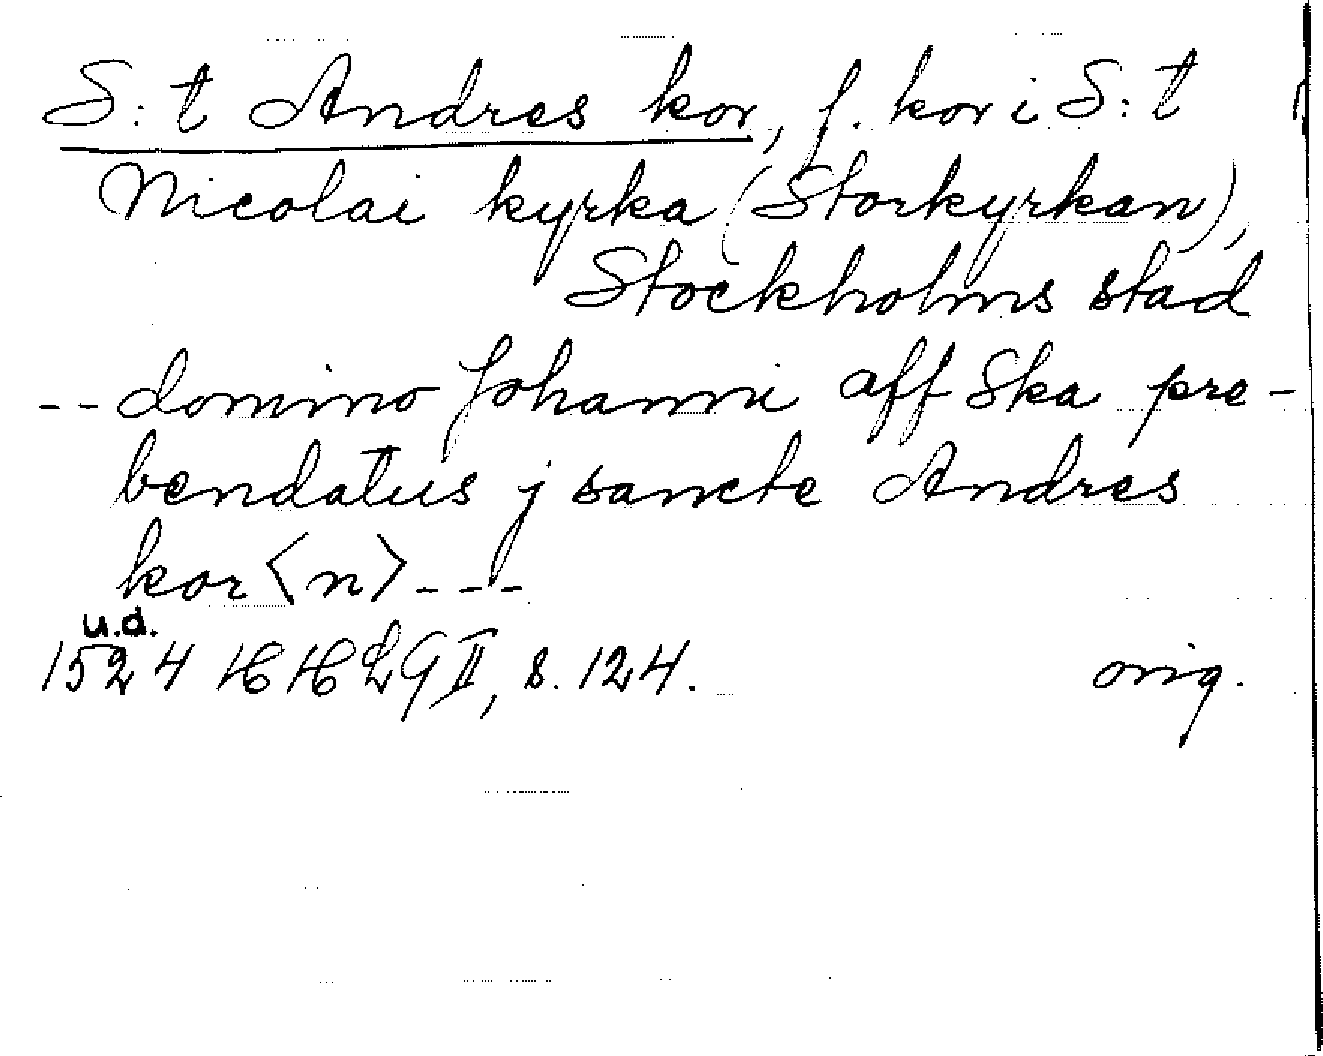 S:t Andres kor, f. kor i S:t
Nicolai kyrka (Storkyrkan),
Stockholms stad
-- domino Johanni aff Ska pre-
bendatus j sancte Andres
kor<n>---
u.d.
1524 HH LG II, s. 124. orig.